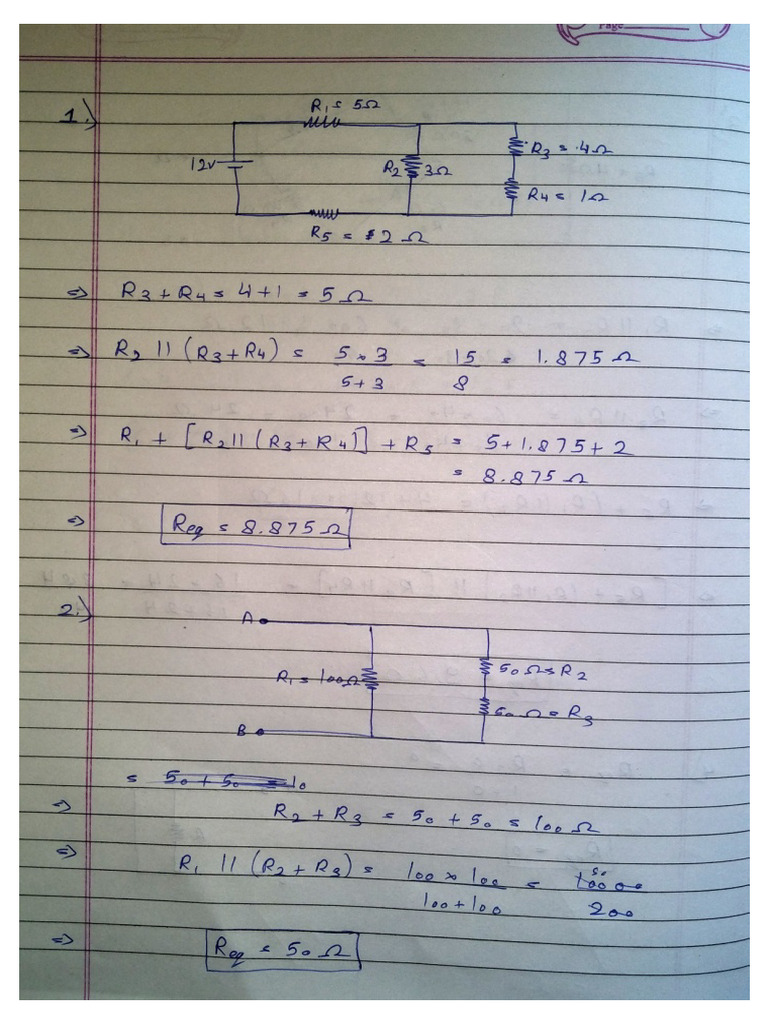 Page
1.)
R1 = 5Ω
12v
R2 3Ω
R3 = 4Ω
R4 = 1Ω
R5 = 2Ω
=> R3 + R4 = 4+1 = 5Ω
=> R2 || (R3+R4) = 5×3 / 5+3 = 15 / 8 = 1.875Ω
=> R1 + [R2 || (R3+R4)] + R5 = 5+1.875+2
= 8.875Ω
=> Req = 8.875Ω
2.)
A
R1 = 100Ω
50Ω = R2
50Ω = R3
B
= 50 + 50 = 10
=> R2 + R3 = 50 + 50 = 100Ω
=> R1 || (R2 + R3) = 100 × 100 / 100+100 = 10000 / 200
50
=> Req = 50Ω